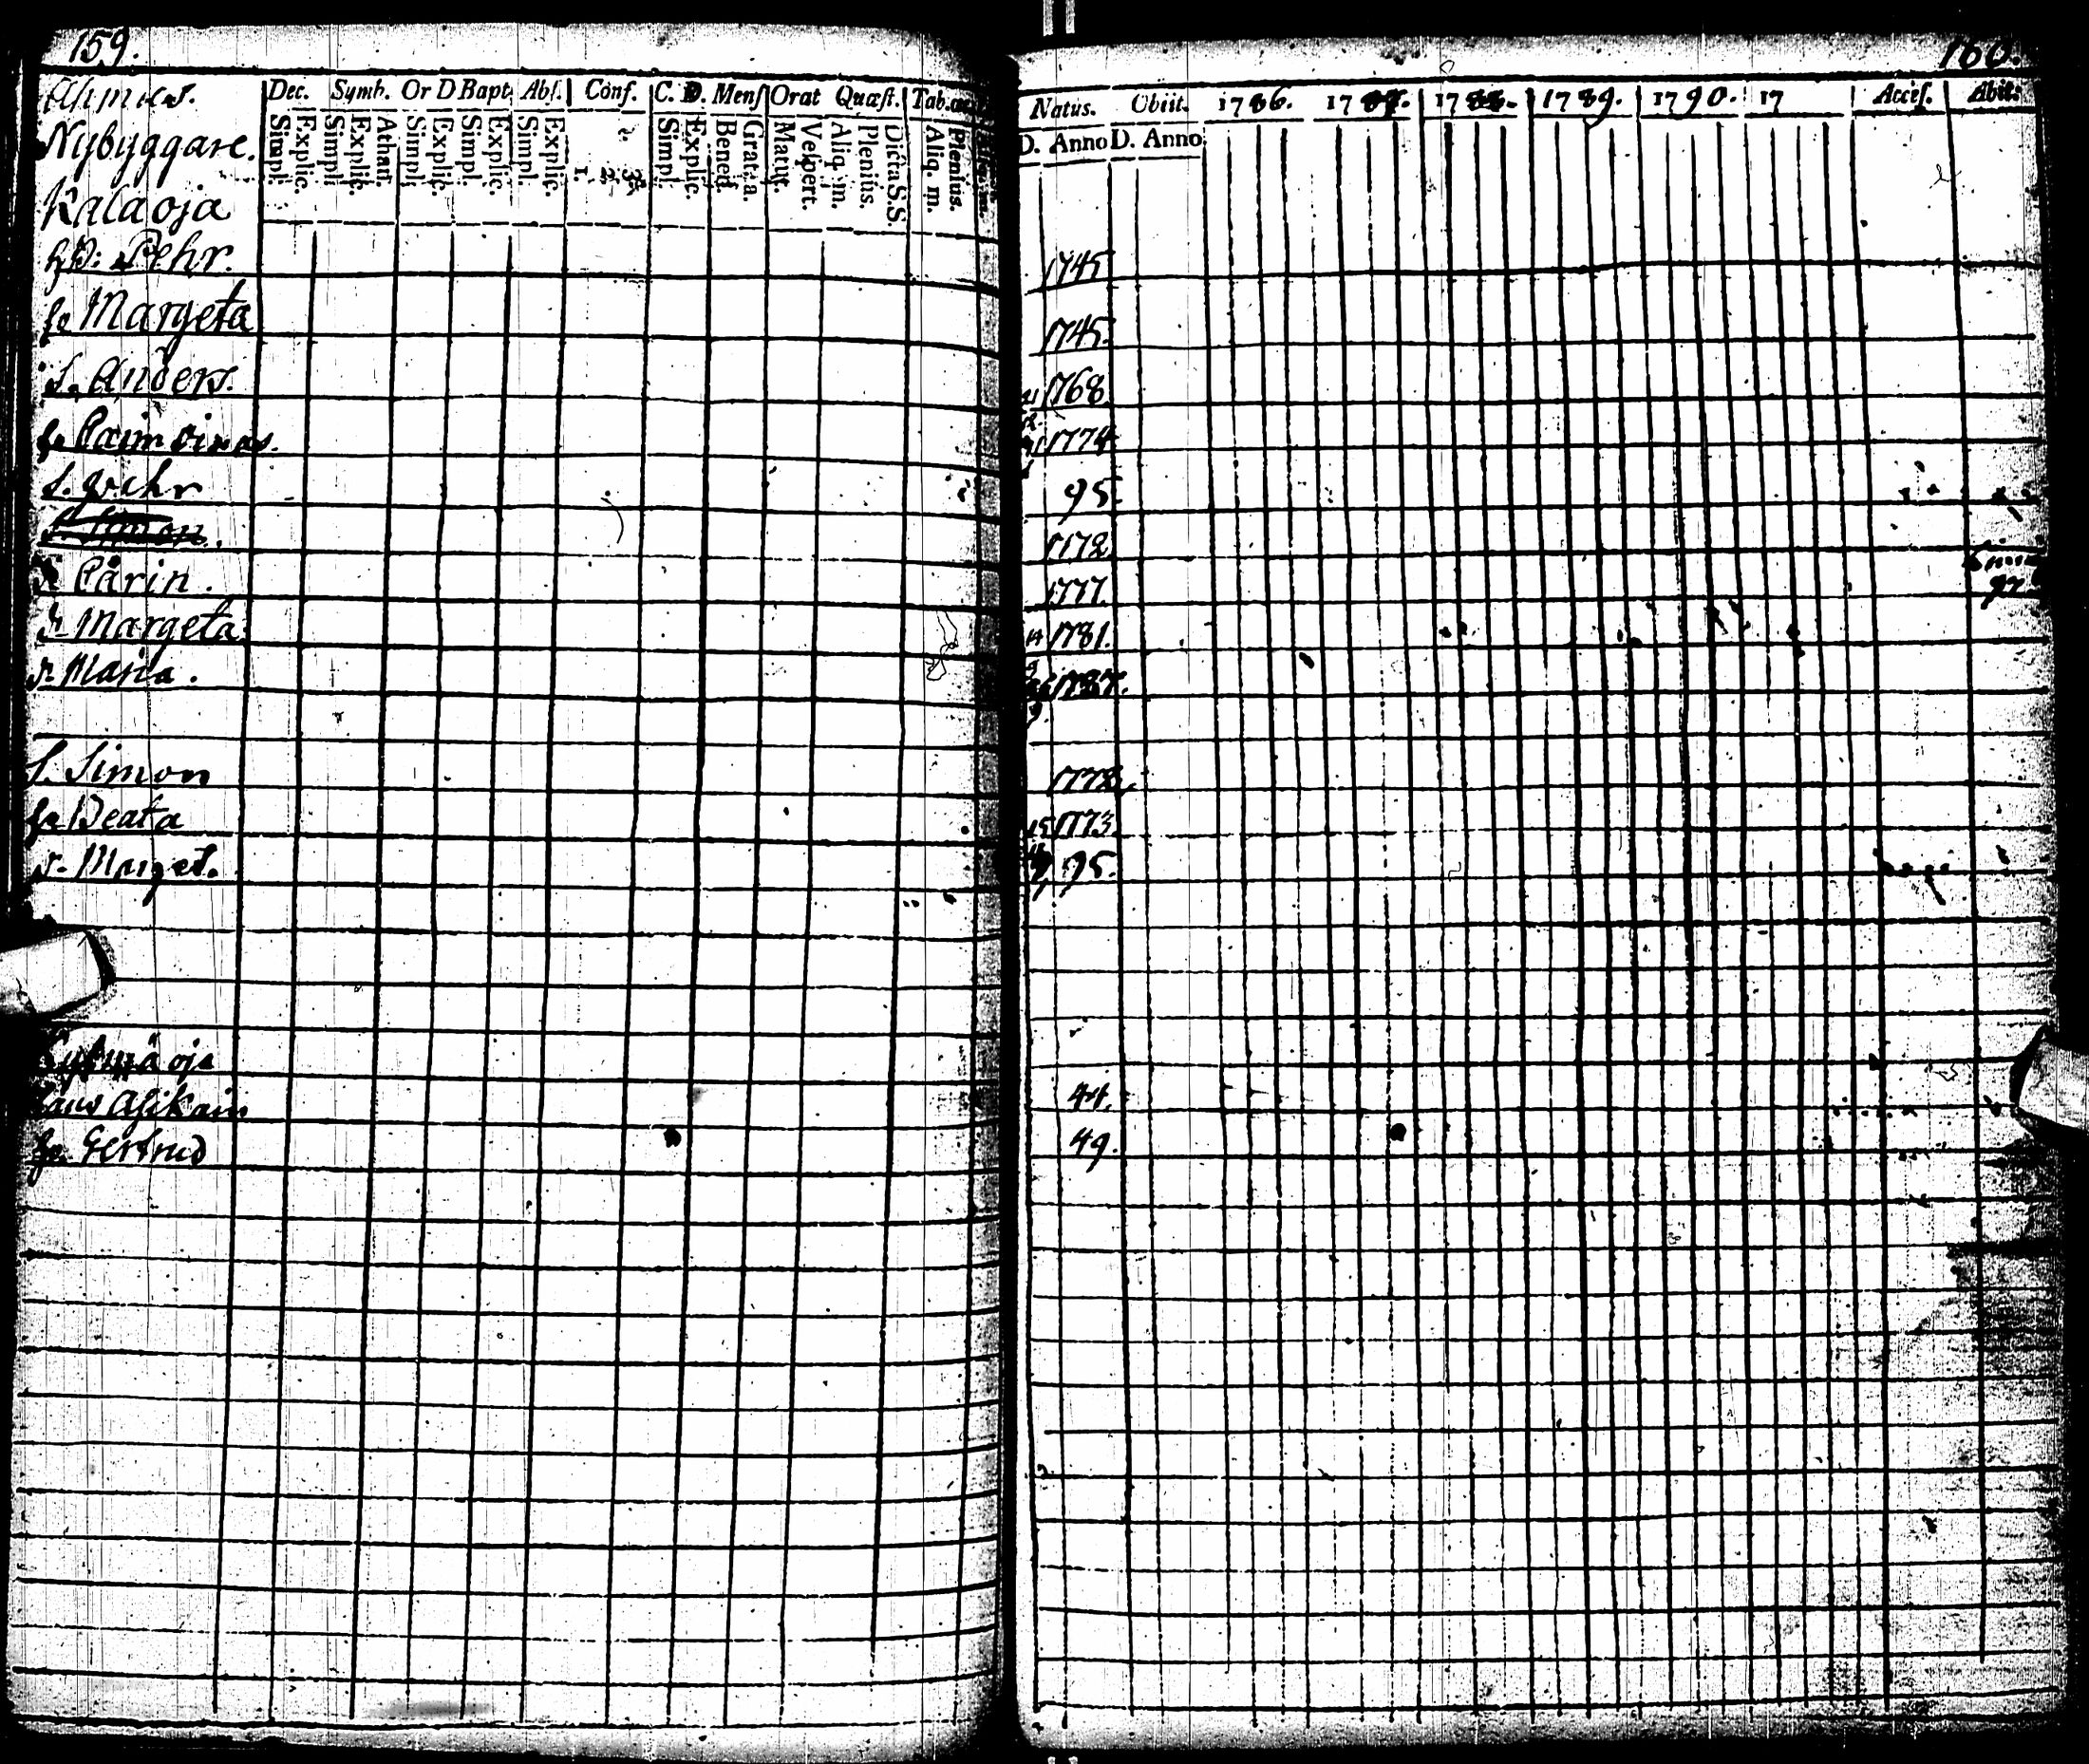 159.
Dec. Symb. Or D Bapt. Abs. Conf. C. D. Mens Orat Quæst. Tab.
Simpl. Explic. Simpl. Explic. Athan. Simpl. Explic. Simpl. Explic. Simpl. Explic. 1. 2. 3. Simpl. Explic. Bened. Grat. a. Matut. Vespert. Aliq. m. Plenius. Dicta S.S. Aliq. m. Plenius.
Nybyggare.
Kalaoja
Pehr.
Margeta
S. Anders.
S. Simon.
Carin.
Margeta
Maria.
S. Simon
Beata
Marget.
Gertrud
160.
Natus. Obiit. 1786. 1787. 1788. 1789. 1790. 17 Access. Abit.
D. Anno D. Anno
1745
1745.
1768
1774
95.
1772
1777.
14 1781.
1787.
1772
15 1773
95.
44.
49.